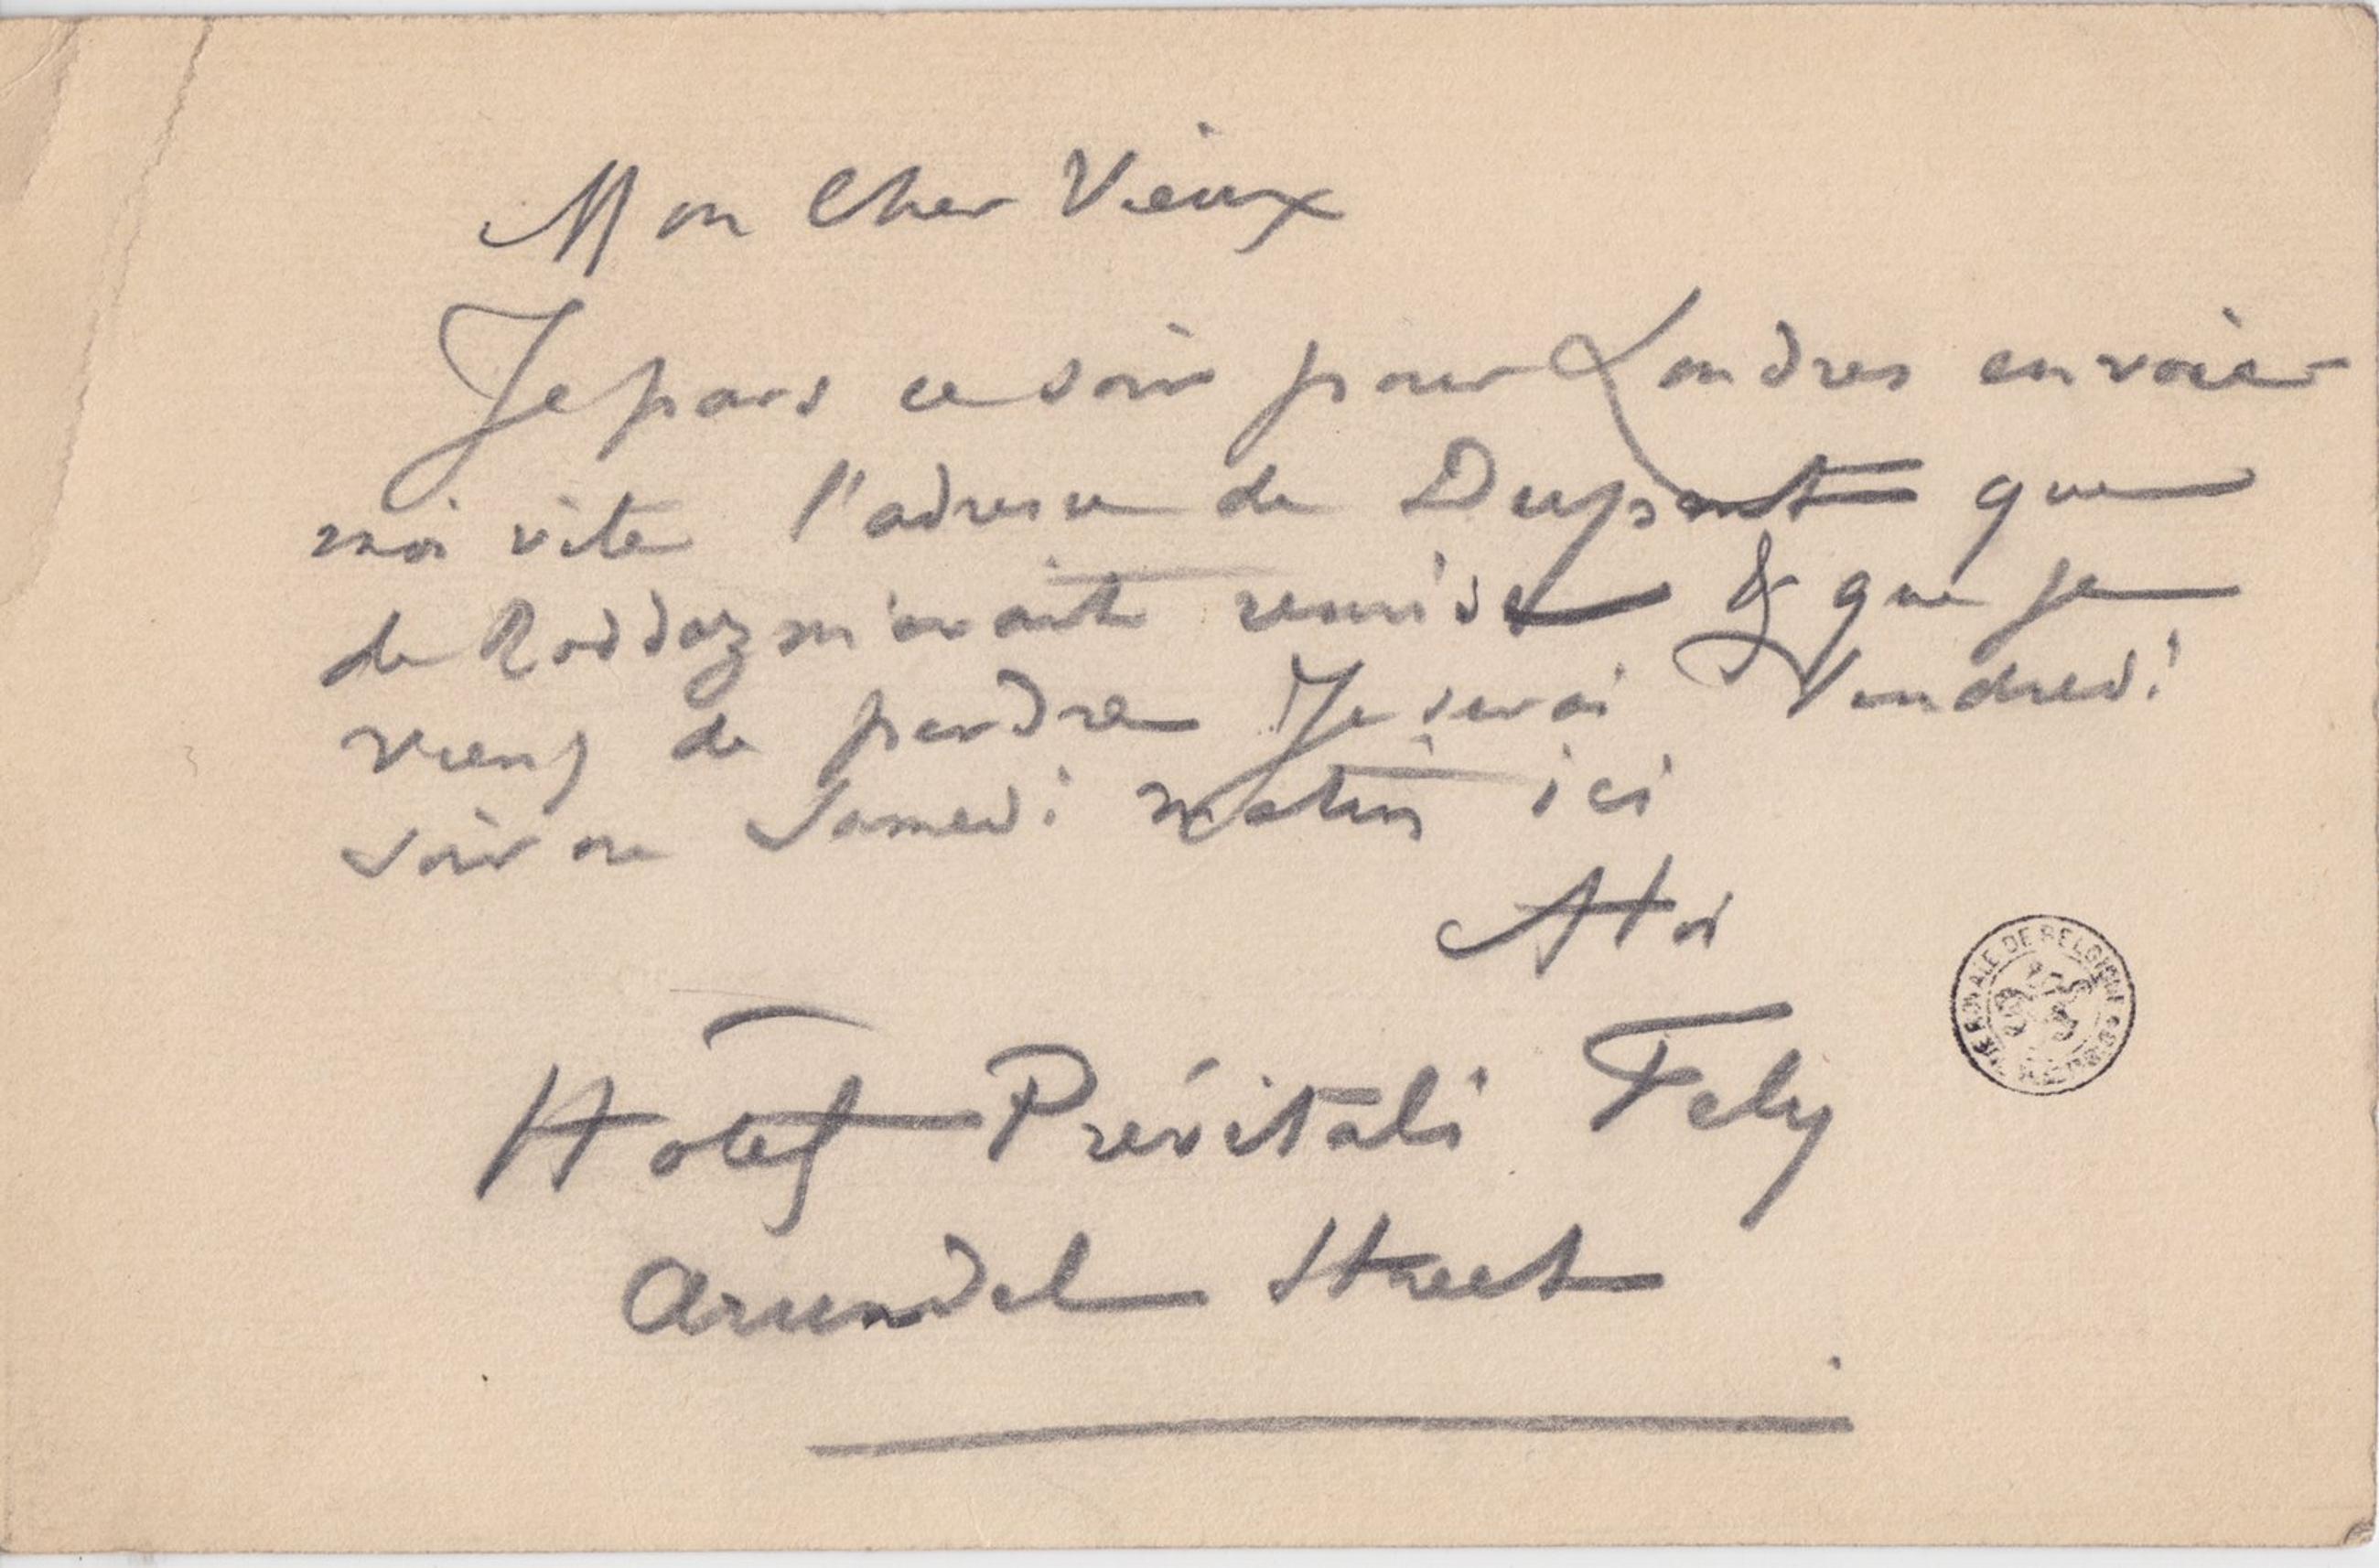 Mon Cher Vieux
Je pars ce soir pour Londres envoier
moi vite l'adresse de Dupont que
de Roddaz m'avait remise & que je
viens de perdre Je serai Vendredi
soir ou Samedi matin ici
A toi
Hôtel Prévitali Fely
Arundel Street
ROYALE DE BELGIQUE